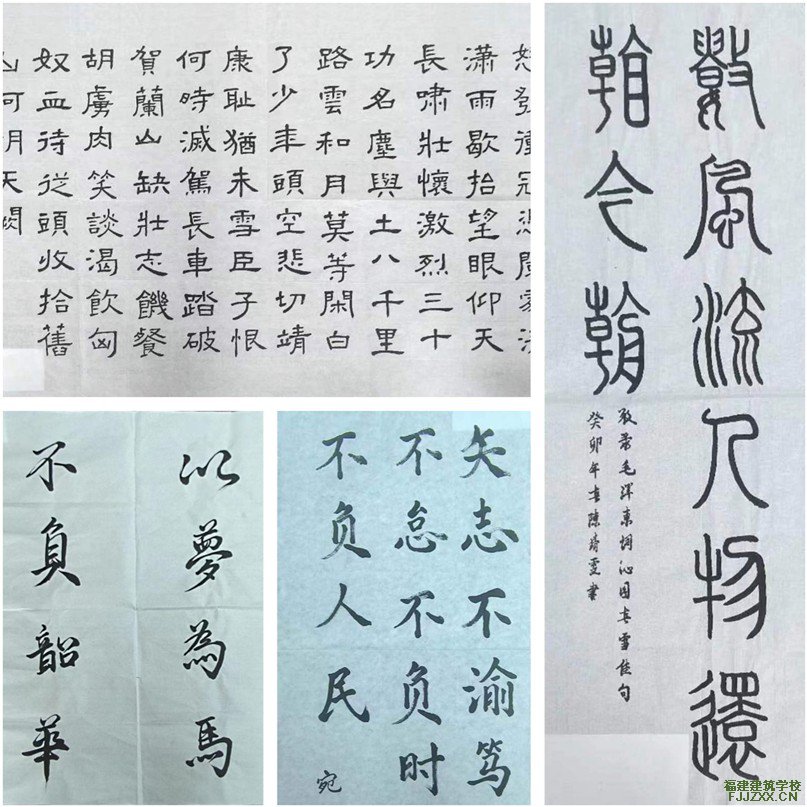 怒發衝冠
瀟雨歇抬望眼仰天
長嘯壯懷激烈三十
功名塵與土八千里
路雲和月莫等閑白
了少年頭空悲切靖
康耻猶未雪臣子恨
何時滅駕長車踏破
賀蘭山缺壯志饑餐
胡虜肉笑談渴飲匈
奴血待從頭收拾舊
山河朝天闕
數風流人物還
看今朝
敬录毛泽東詞沁园春雪佳句
癸卯年春陳靖雯書
以夢為馬
不負韶華
矢志不渝笃
不怠不负时
不负人民
宛
福建建筑学校
FJJZXX.CN